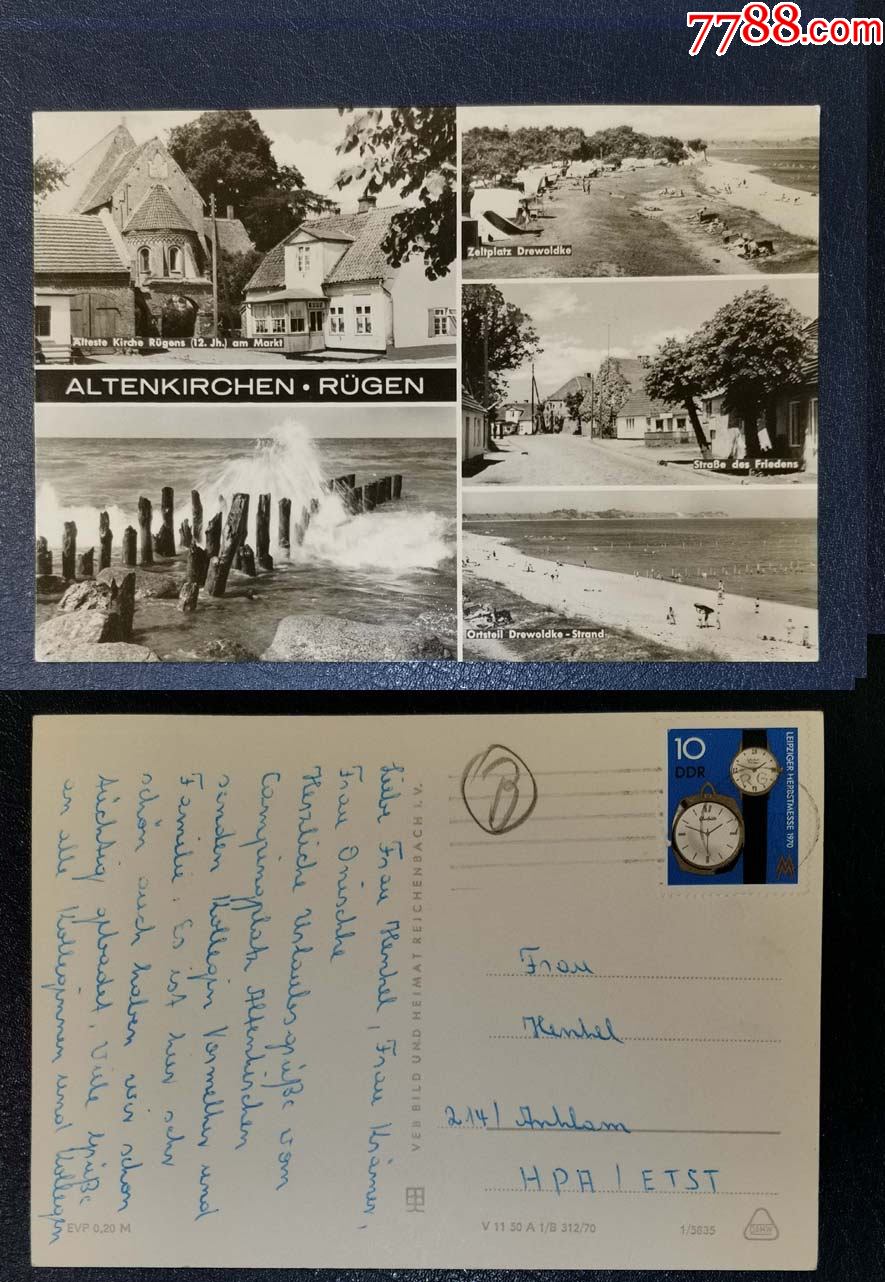 7788.com
Älteste Kirche Rügens (12. Jh.) am Markt
Zeltplatz Drewoldke
ALTENKIRCHEN · RÜGEN
Straße des Friedens
Ortsteil Drewoldke - Strand
Liebe Frau Henkel, Frau Krämer,
Frau
Herzliche Urlaubsgrüße vom
Campingplatz Altenkirchen
senden Kollegin und
Familie. Es ist hier sehr
schön auch haben wir schon
tüchtig gebadet, Viele Grüße
an alle Kolleginnen und Kollegen
EVP 0,20 M
VEB BILD UND HEIMAT REICHENBACH I. V.
10
DDR
LEIPZIGER HERBSTMESSE 1970
Frau
Henkel
214/ Anklam
HPA / ETST
V 11 50 A 1/B 312/70
1/5835